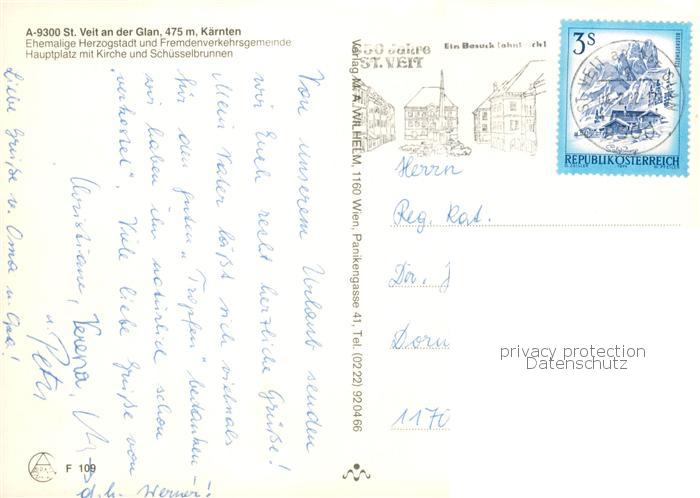 A-9300 St. Veit an der Glan, 475 m, Kärnten
Ehemalige Herzogstadt und Fremdenverkehrsgemeinde
Hauptplatz mit Kirche und Schüsselbrunnen
Von unserem Urlaub senden
wir Euch recht herzliche Grüße!
Mein Vater läßt sich vielmals
für den guten "Tropfen" bedanken –
wir haben ihn natürlich schon
"verkostet". Viele liebe Grüße von
Christiane, Verena,
u. Peter
d.h. Werner!
Liebe Grüße v. Oma u. Opa!
F 109
Verlag M. A. WILHELM, 1160 Wien, Panikengasse 41, Tel. (02 22) 92 04 66
850 Jahre
ST. VEIT
Ein Besuch lohnt sich!
3 S
REPUBLIK ÖSTERREICH
Herrn
Reg. Rat.
Dir. J
Dorn
1170
privacy protection
Datenschutz